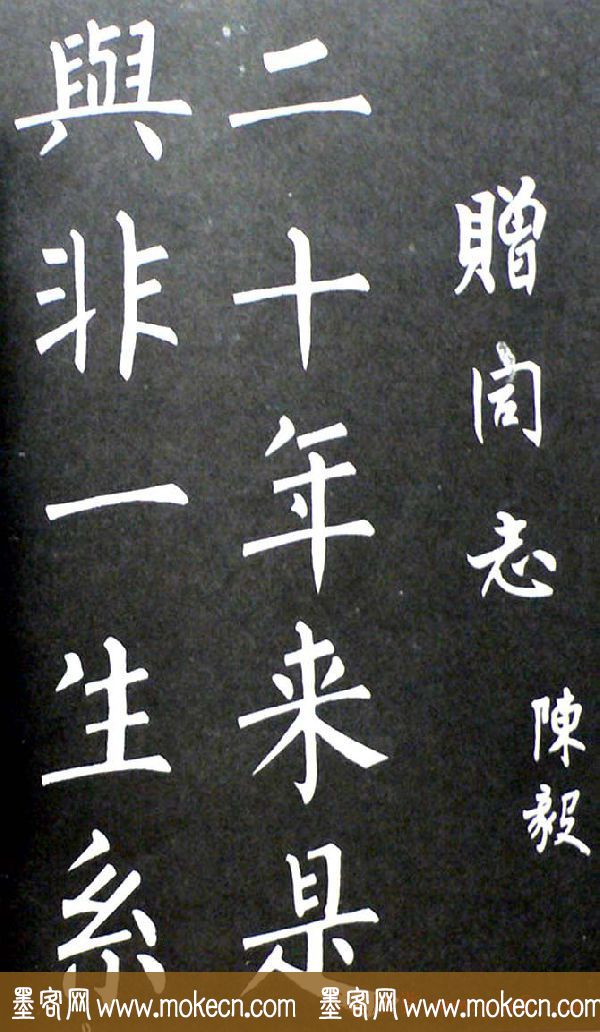 贈同志
陳毅
二十年来是
與非一生系
墨客网 www.mokecn.com 墨客网 www.mokecn.com